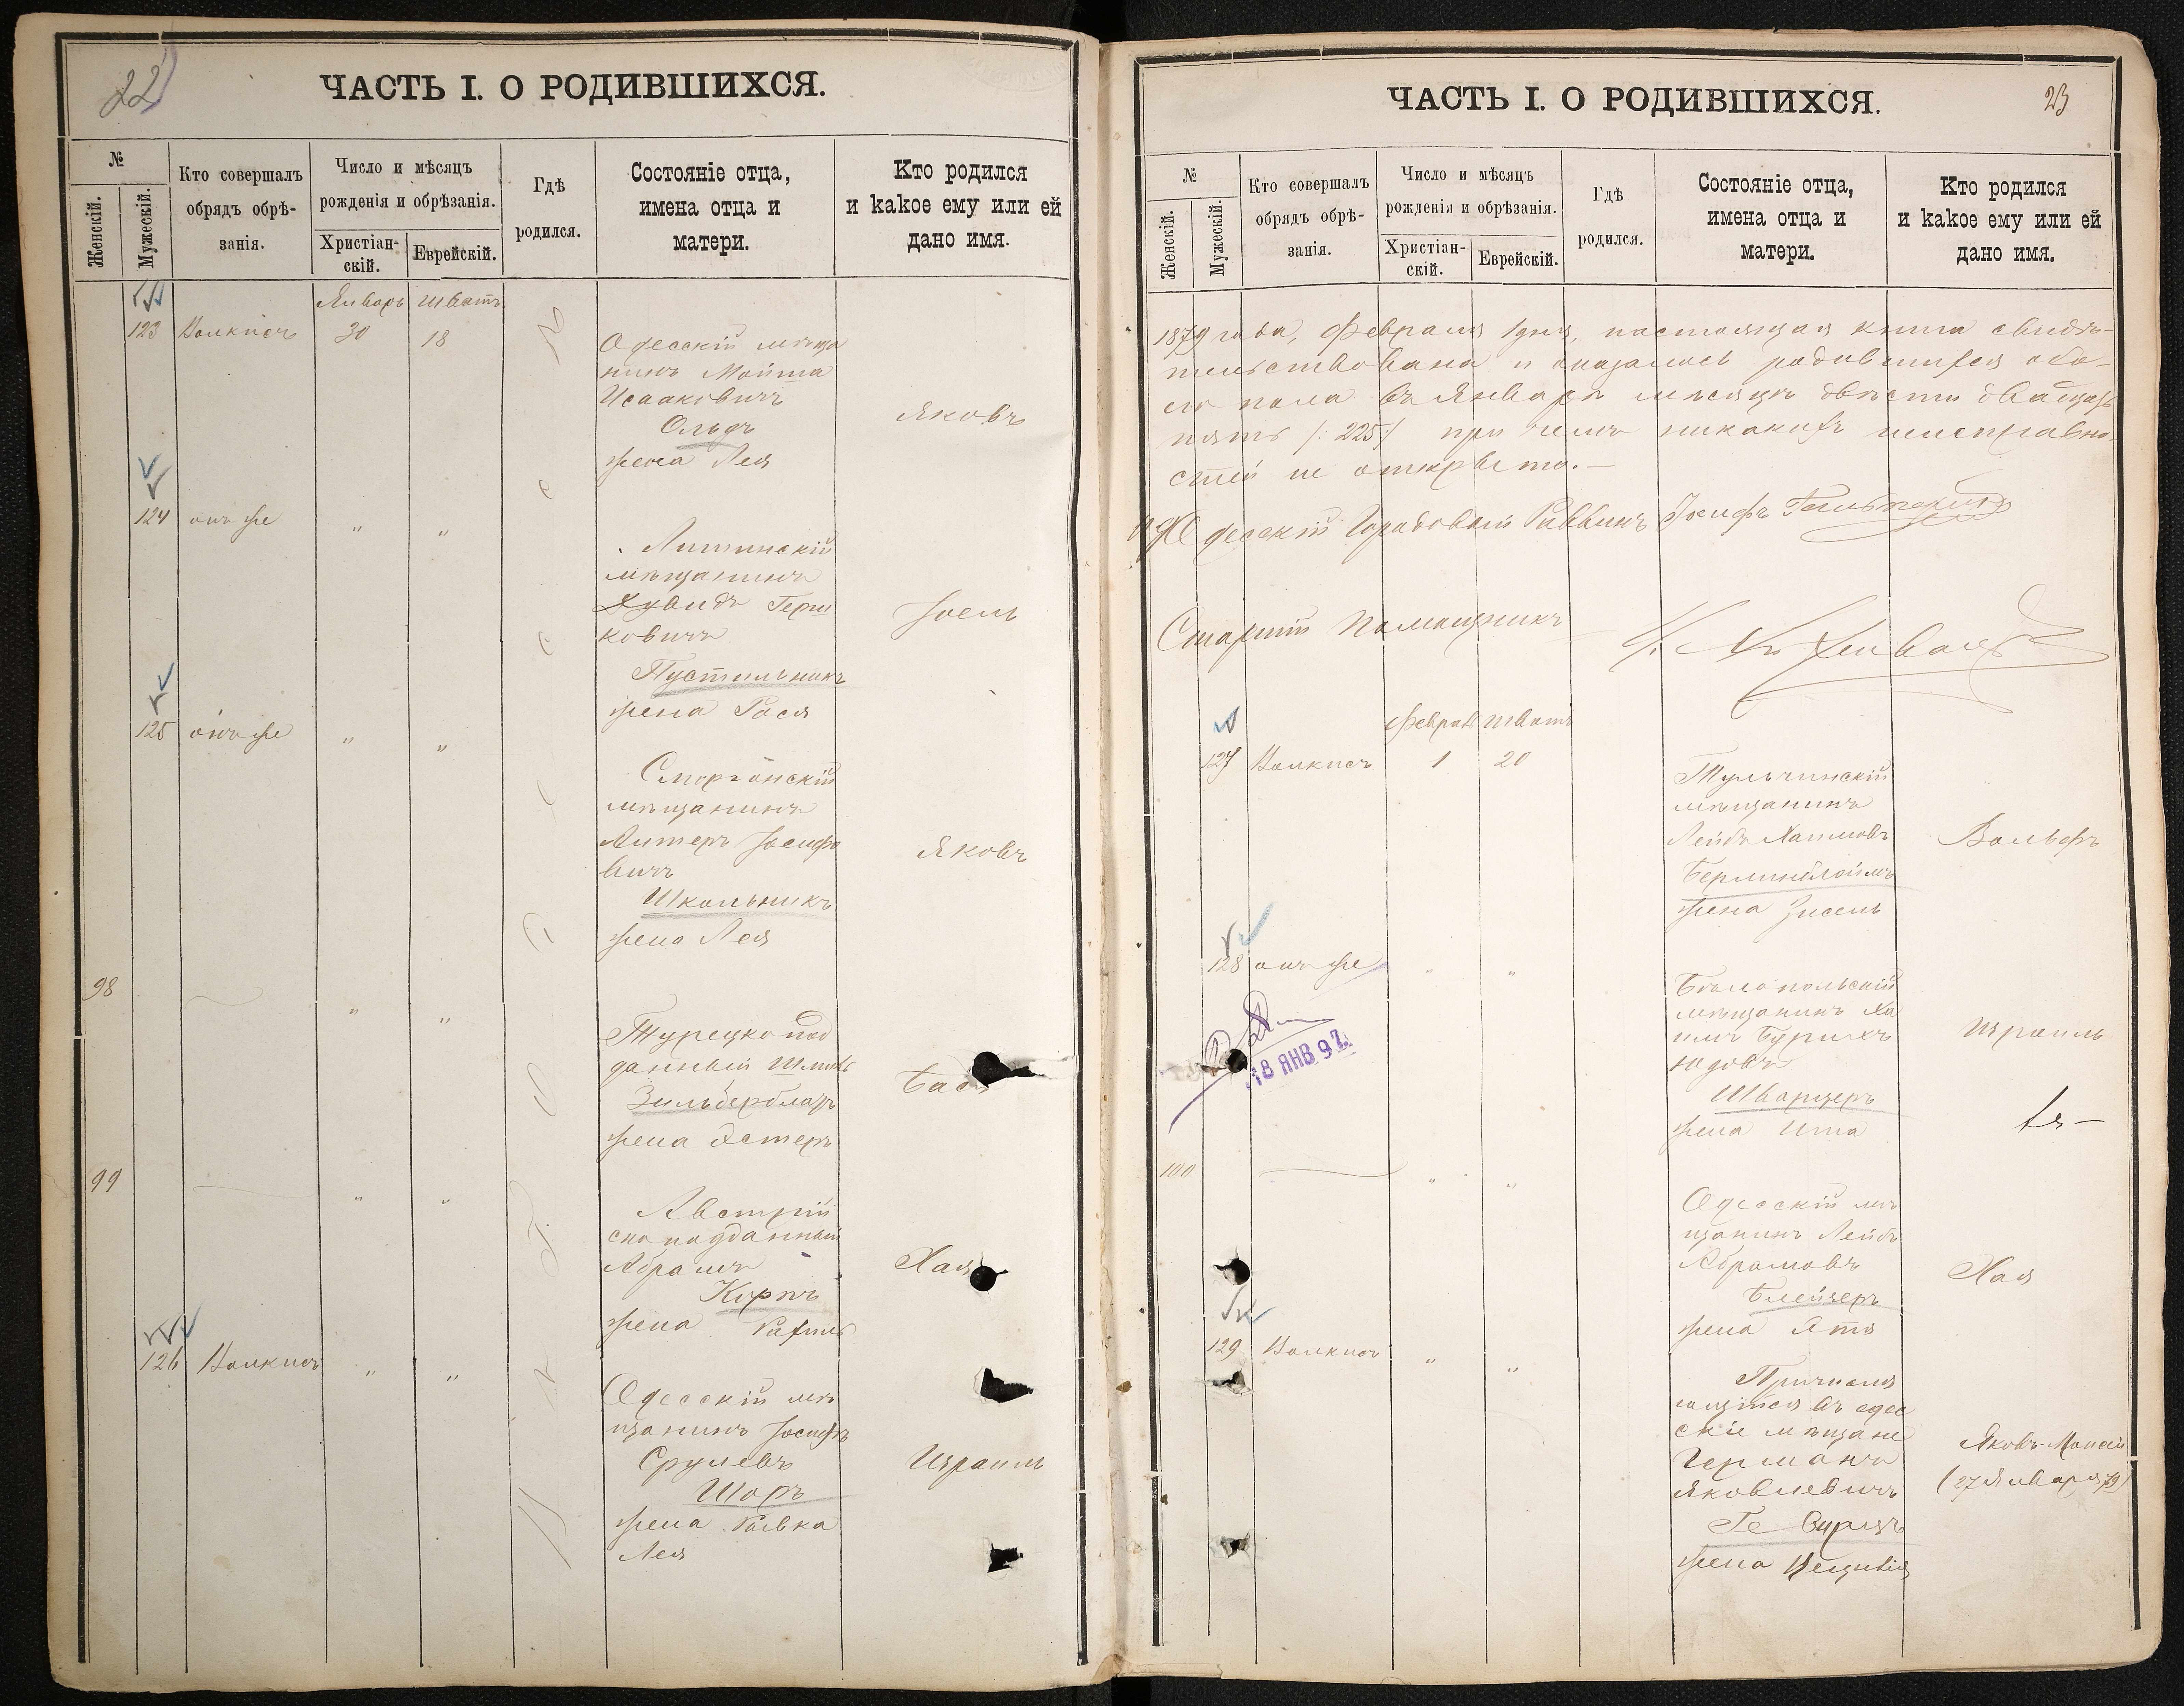 22
ЧАСТЬ I. О РОДИВШИХСЯ.
№
Женскій.
Мужескій.
Кто совершалъ
обрядъ обрѣ-
занія.
Число и мѣсяцъ
рожденія и обрѣзанія.
Христіан-
скій.
Еврейскій.
Гдѣ
родился.
Состояніе отца,
имена отца и
матери.
Кто родился
и какое ему или ей
дано имя.
Январь Шватъ
123 30 18
Одесскій мѣща
нинъ
Исааковичъ
жена Лея
Яковъ
124 онъ же " "
Литинскій
мѣщанинъ
Дувидъ Герш
ковичъ
Пустильникъ
жена Рася
Іоель
125 онъ же " "
Сморгонскій
мѣщанинъ
Литеръ Іосифо
вичъ
Школьникъ
жена Лея
Яковъ
98 " "
Турецкопод
данный
Зильберблатъ
жена Эстеръ
Бася
99 " "
Австрій
скоподданный
Абрамъ
жена Рахиль
Хая
126 " "
Одесскій мѣ
щанинъ Іосифъ
Срулевъ
Шоръ
жена Ривка
Лея
Израиль
23
ЧАСТЬ I. О РОДИВШИХСЯ.
№
Женскій.
Мужескій.
Кто совершалъ
обрядъ обрѣ-
занія.
Число и мѣсяцъ
рожденія и обрѣзанія.
Христіан-
скій.
Еврейскій.
Гдѣ
родился.
Состояніе отца,
имена отца и
матери.
Кто родился
и какое ему или ей
дано имя.
1879 года, Февраля 1 дня, настоящая книга свидѣ-
тельствована и оказалось родившихся обо-
его пола въ Январѣ мѣсяцѣ двѣсти двадцать
пять /:225:/ при чемъ никакихъ неисправно-
стей не открыто.—
Одесскій Городовый Раввинъ Іосифъ
Старшій Помощникъ
Февраль Шватъ
127 1 20
Тульчинскій
мѣщанинъ
Лейбъ Хаимовъ
жена Зисель
Вольфъ
128 онъ же " "
18 ЯНВ 97
Бѣлопольскій
мѣщанинъ Ха
имъ Бурихъ
Юдовъ
Шварцеръ
жена Ита
Израиль
100 " "
Одесскій мѣ
щанинъ Лейбъ
Абрамовъ
Блейзеръ
жена Этя
Хая
129 " "
Причисля
ющійся въ одес
скіе мѣщане
Германъ
Яковлевичъ
жена
Яковъ-Моисей
(27 Января 79)